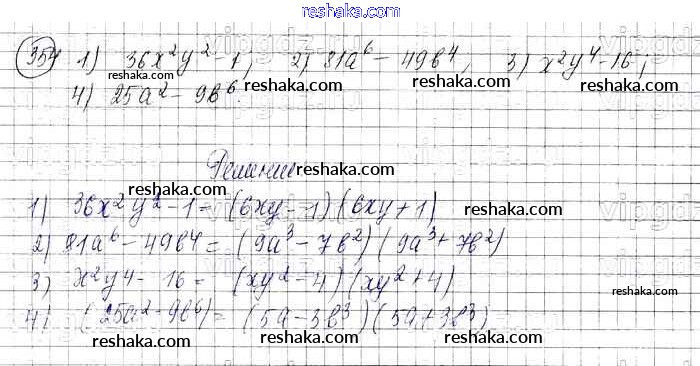 reshaka.com
354 1) 36x²y² - 1; 2) 81a⁶ - 49b⁴; 3) x²y⁴ - 16;
reshaka.com reshaka.com reshaka.com
4) 25a² - 9b⁶.
reshaka.com
Решение reshaka.com
reshaka.com
1) 36x²y² - 1 = (6xy - 1)(6xy + 1)
reshaka.com
2) 81a⁶ - 49b⁴ = (9a³ - 7b²)(9a³ + 7b²)
reshaka.com
3) x²y⁴ - 16 = (xy² - 4)(xy² + 4)
reshaka.com
4) (25a² - 9b⁶) = (5a - 3b³)(5a + 3b³)
reshaka.com
reshaka.com
reshaka.com